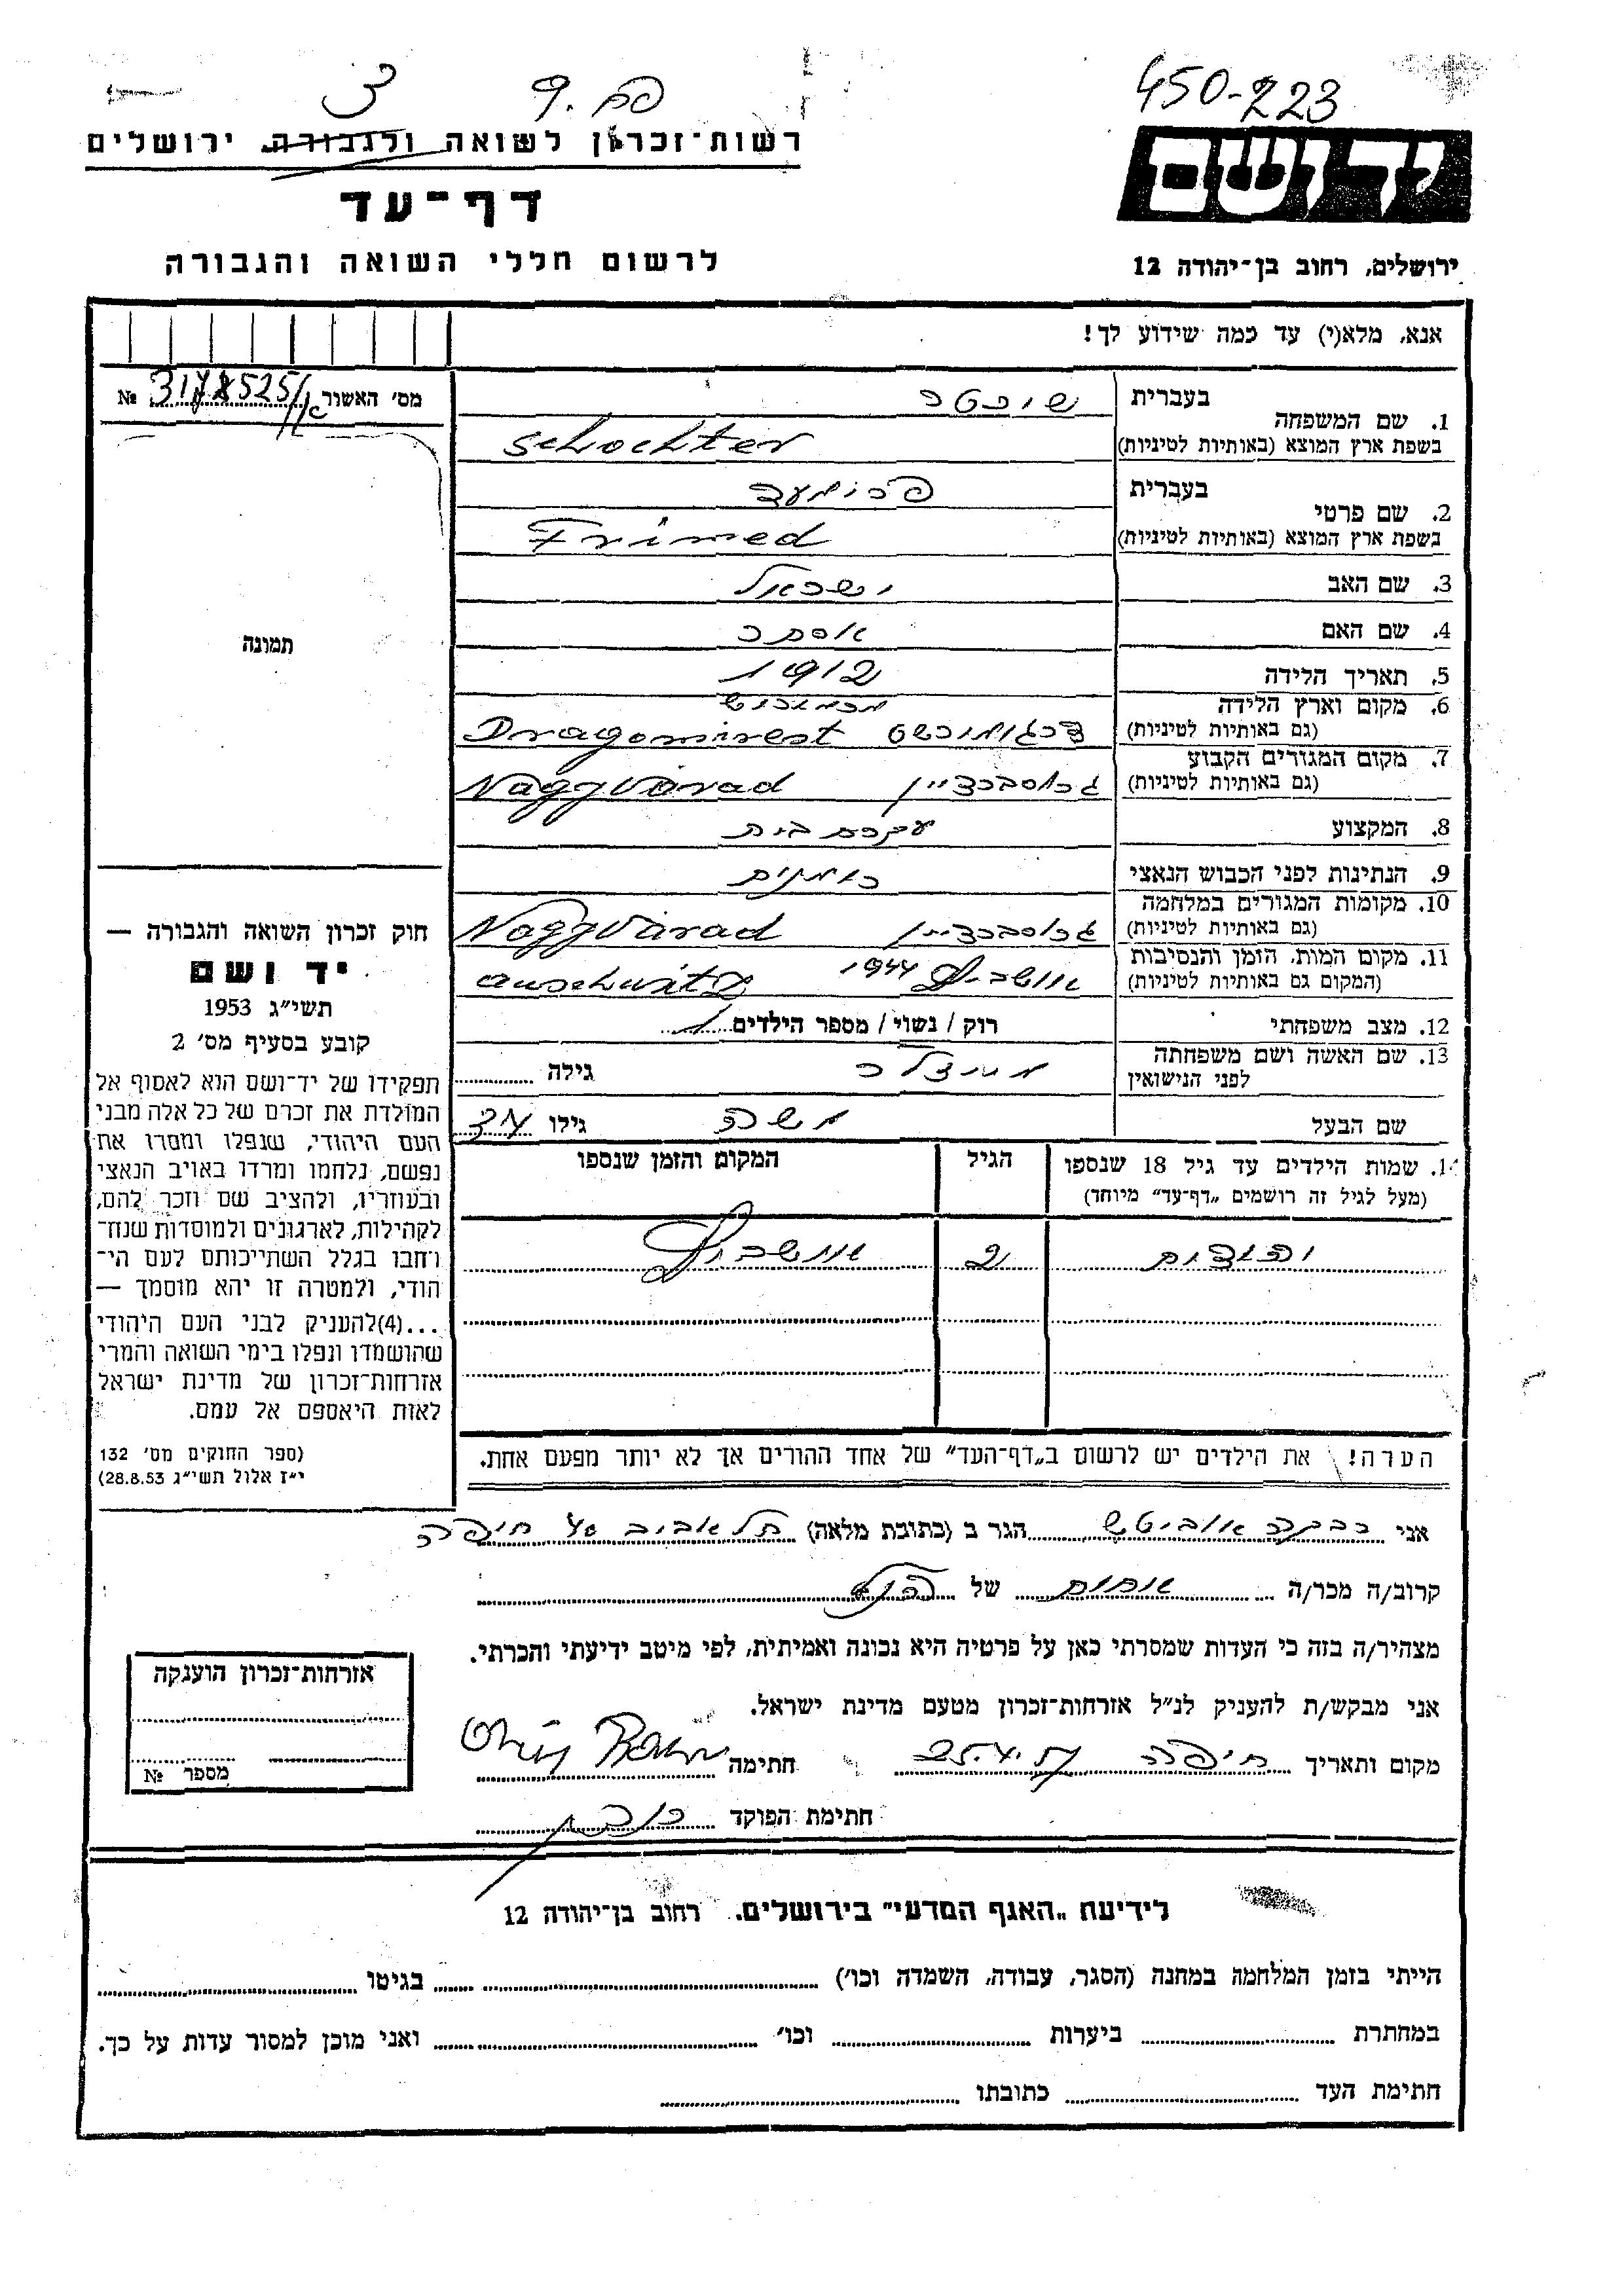 450-223
פח. 9
3
יד ושם
ירושלים, רחוב בן-יהודה 12
רשות-זכרון לשואה ולגבורה, ירושלים
דף-עד
לרשום חללי השואה והגבורה
אנא, מלא(י) עד כמה שידוע לך!
מס' האשור №
1. שם המשפחה בעברית שוכטר
בשפת ארץ המוצא (באותיות לטיניות) Schochter
2. שם פרטי בעברית פרימעד
בשפת ארץ המוצא (באותיות לטיניות) Frimed
3. שם האב ישראל
4. שם האם אסתר
5. תאריך הלידה 1912
6. מקום וארץ הלידה מרמורוש
(גם באותיות לטיניות) דרגומירשט Dragomirest
7. מקום המגורים הקבוע
(גם באותיות לטיניות) גרוסברדיין Nagyvárad
8. המקצוע עקרת בית
9. הנתינות לפני הכבוש הנאצי
10. מקומות המגורים במלחמה
(גם באותיות לטיניות) גרוסברדיין Nagyvárad
11. מקום המות, הזמן והנסיבות
(המקום גם באותיות לטיניות) אושביץ 1944 Auschwitz
12. מצב משפחתי רוק / נשוי / מספר הילדים 1
13. שם האשה ושם משפחתה
לפני הנישואין גילה
שם הבעל משה גילו
14. שמות הילדים עד גיל 18 שנספו
(מעל לגיל זה רושמים "דף-עד" מיוחד)
הגיל
המקום והזמן שנספו
יהודית 2 אושביץ
הערה! את הילדים יש לרשום ב"דף-העד" של אחד ההורים אך לא יותר מפעם אחת.
תמונה
חוק זכרון השואה והגבורה —
יד ושם
תשי"ג 1953
קובע בסעיף מס' 2
תפקידו של יד-ושם הוא לאסוף אל
המולדת את זכרם של כל אלה מבני
העם היהודי, שנפלו ומסרו את
נפשם, נלחמו ומרדו באויב הנאצי
ובעוזריו, ולהציב שם וזכר להם,
לקהילות, לארגונים ולמוסדות שנח-
רחבו בגלל השתייכותם לעם הי-
הודי, ולמטרה זו יהא מוסמך —
...(4)להעניק לבני העם היהודי
שהושמדו ונפלו בימי השואה והמרי
אזרחות-זכרון של מדינת ישראל
לאות היאספם אל עמם.
(ספר החוקים מס' 132
י"ז אלול תשי"ג 28.8.53)
אני רבקה אוביטש הגר ב (כתובת מלאה) תל אביב 40 חיפה
קרוב/ה מכר/ה אחות של הנ"ל
מצהיר/ה בזה כי העדות שמסרתי כאן על פרטיה היא נכונה ואמיתית, לפי מיטב ידיעתי והכרתי.
אני מבקש/ת להעניק לנ"ל אזרחות-זכרון מטעם מדינת ישראל.
מקום ותאריך חיפה חתימה
חתימת הפוקד
אזרחות-זכרון הוענקה
מספר №
לידיעת "האגף המדעי" בירושלים. רחוב בן-יהודה 12
הייתי בזמן המלחמה במחנה (הסגר, עבודה, השמדה וכו') בגיטו
במחתרת ביערות וכו' ואני מוכן למסור עדות על כך.
חתימת העד כתובתו